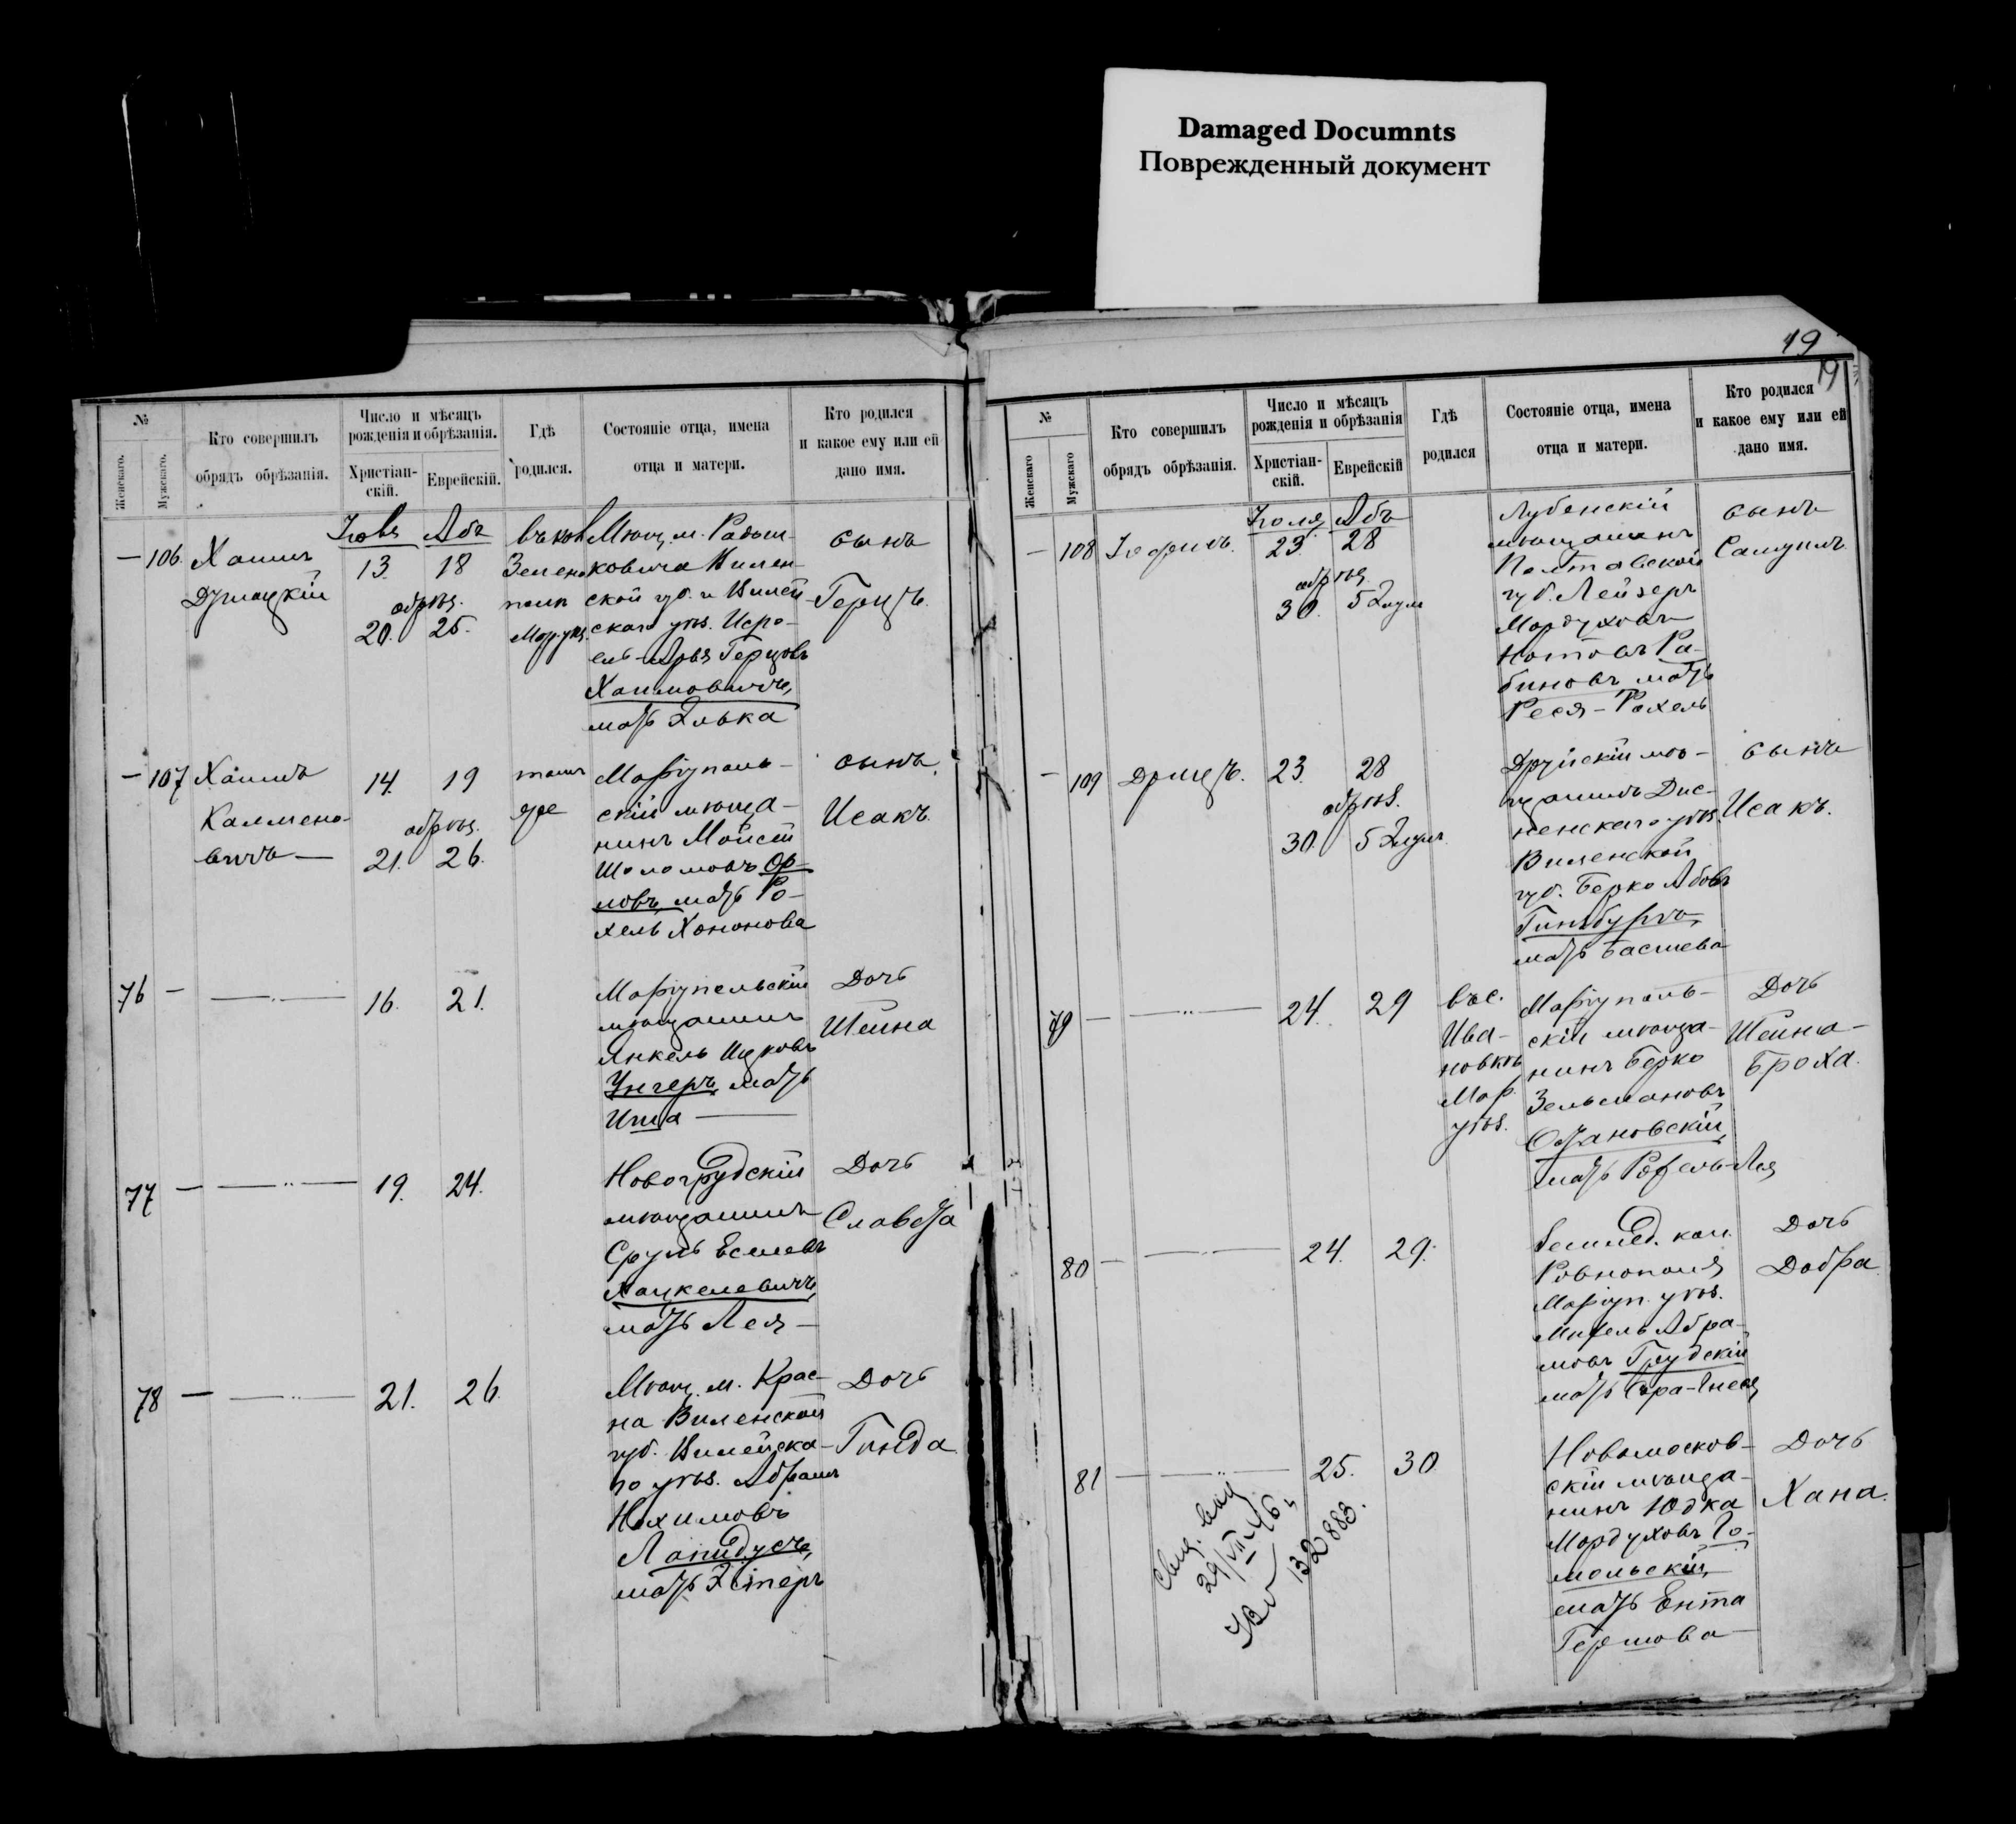 Damaged Documnts
Поврежденный документ
19
19
№
Женскаго.
Мужскаго.
Кто совершилъ
обрядъ обрѣзанія.
Число и мѣсяцъ
рожденія и обрѣзанія.
Христіан-
скій.
Еврейскій.
Гдѣ
родился.
Состояніе отца, имена
отца и матери.
Кто родился
и какое ему или ей
дано имя.
— 106. Хаимъ
Абъ
13. 18
обрѣз.
20. 25.
Мѣщ. м. Радош-
ковича Вилен-
ской губ. и Вилей
скаго уѣз. Исро-
ель-Арья Герцовъ
Хаимовичъ,
мать Элька
сынъ
Герцъ.
— 107 Хаимъ
Калмено-
вичъ —
14. 19
обрѣз.
21. 26.
тамъ
же
Маріуполь-
скій мѣща-
нинъ Мойсей
Шоломовъ Ор-
ловъ, мать Ро-
хель Хононова
сынъ
Исакъ.
76 —
16. 21.
Маріупольскій
мѣщанинъ
Янкель Ицковъ
Унгеръ, мать
Дочь
Шейна
77 —
19. 24.
Новогрудскій
мѣщанинъ
Сруль
Хацкелевичъ,
мать Лея —
Дочь
Славета
78 —
21. 26.
Мѣщ. м. Крас-
на Виленской
губ. Вилейска-
го уѣз. Абрамъ
Нохимовъ
Лапидусъ,
мать Эстеръ
Дочь
Гинда
№
Женскаго
Мужскаго
Кто совершилъ
обрядъ обрѣзанія.
Число и мѣсяцъ
рожденія и обрѣзанія
Христіан-
скій.
Еврейскій
Гдѣ
родился
Состояніе отца, имена
отца и матери.
Кто родился
и какое ему или ей
дано имя.
— 108
Іюля Абъ
23 28
обрѣз.
30. 5 Элулъ
Лубенскій
мѣщанинъ
Полтавской
губ. Лейзеръ
Мордуховъ
Нотовъ Ра-
биновъ мать
Рося-Рохель
сынъ
Самуилъ.
— 109
23. 28
обрѣз.
30. 5 Элулъ
Друйскій мѣ-
щанинъ Дис-
ненскаго уѣз.
Виленской
губ. Берко Абовъ
Гинзбургъ,
мать Басшева
сынъ
Исакъ.
79 —
24. 29
въ с.
Ива-
новкѣ
Мар.
уѣз.
Маріуполь-
скій мѣща-
нинъ Берко
Зельмановъ
мать
Дочь
Шейна-
Броха.
80 —
24. 29.
кол.
Ровнополя
Маріуп. уѣз.
Абра-
мовъ Грудскій
мать Сора-
Дочь
Добра
81 —
25. 30
Новомосков-
скій мѣща-
нинъ Юдка
Мордуховъ Го-
мольскій,
мать Ента
Гершова
Дочь
Хана.
29/VII-46
132883.